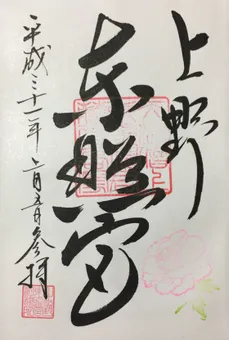 上野
東照宮
平成三十一年二月五日参拝